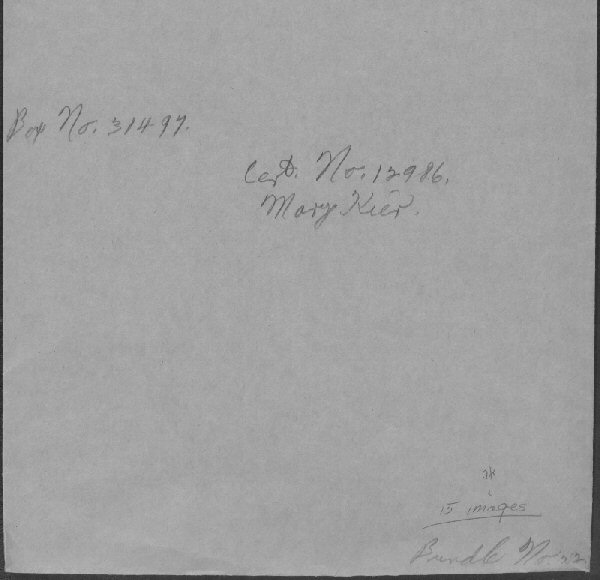 Box No. 31497.
Cert. No. 12986.
Mary Kier.
15 images
Bundle No. 22